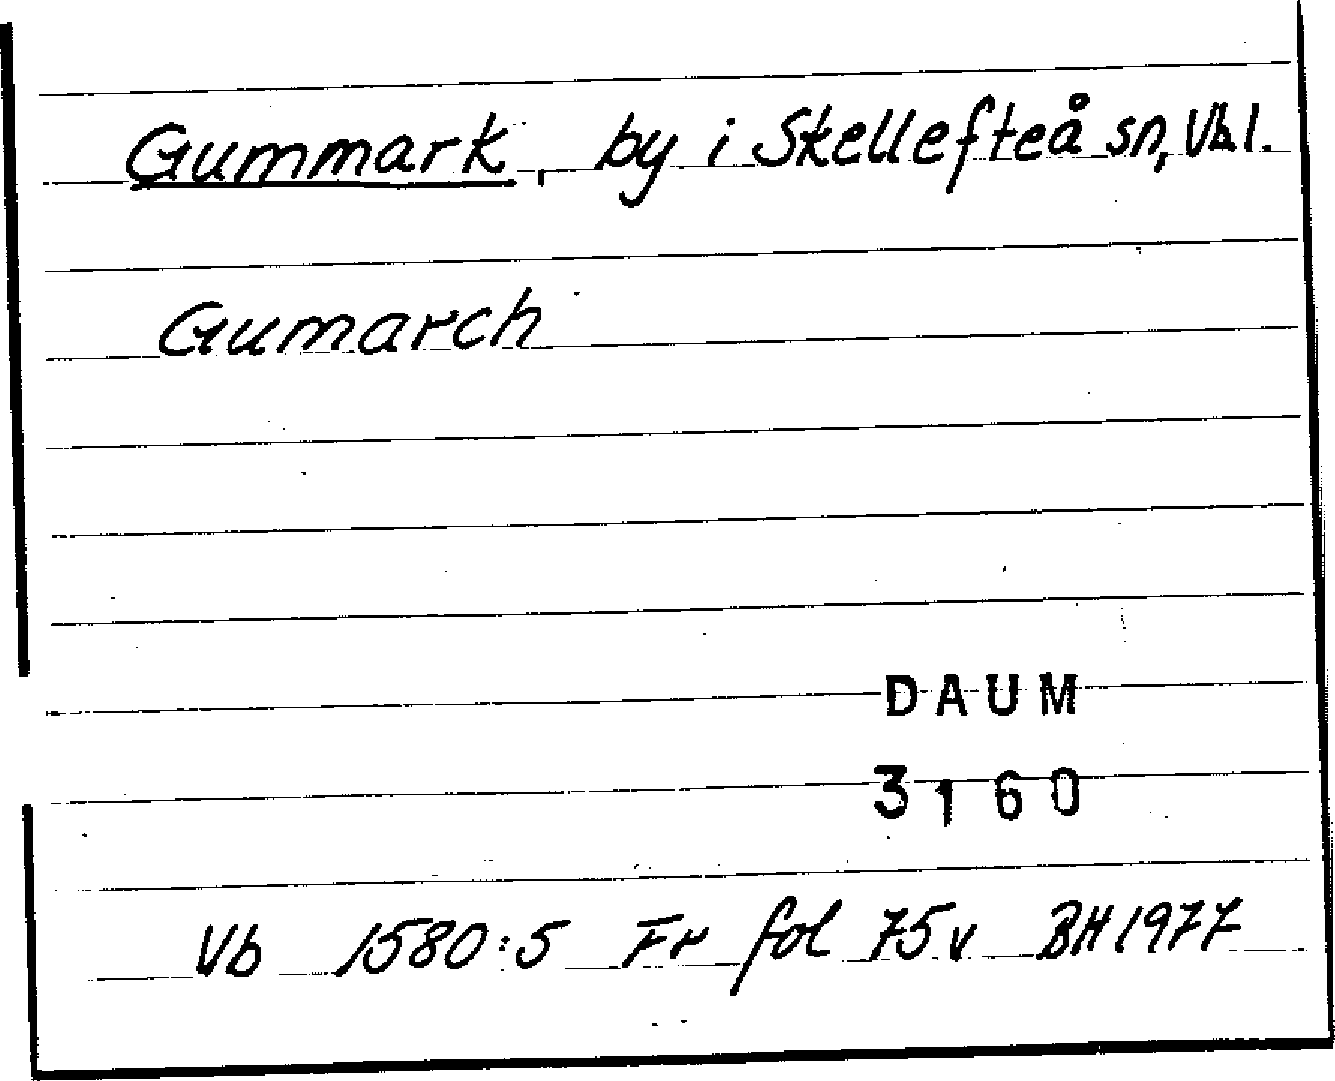 Gummark, by i Skellefteå sn, Vb l.
Gumarch
DAUM
3160
Vb 1580:5 Fr fol 75v BH 1977